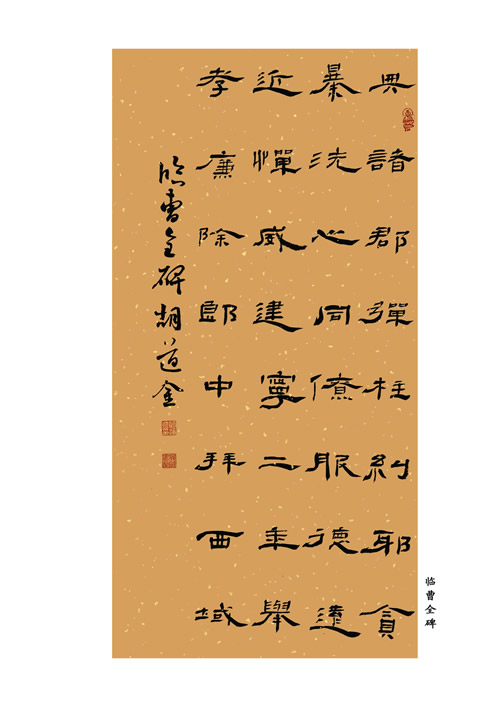 典諸郡彈枉糾邪貪
暴洗心同僚服德遠
近憚威建寧二年舉
孝廉除郎中拜西域
临曹全碑胡道金
临曹全碑